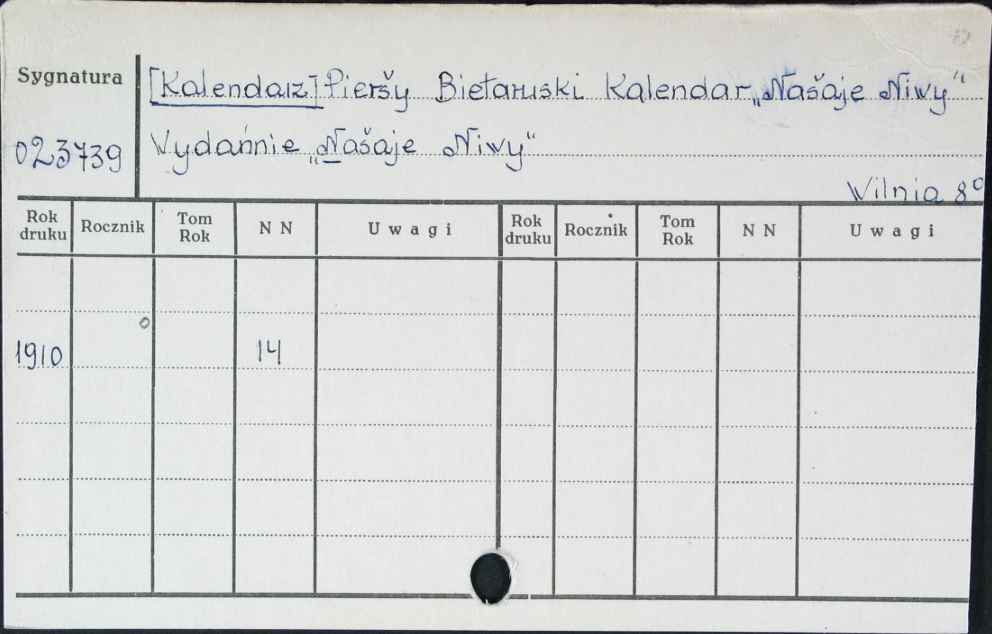 Sygnatura
[Kalendarz] Pieršy Biełaruski Kalendar „Našaje Niwy"
023739
Vydańnie „Našaje Niwy"
Wilnia 8°
Rok druku Rocznik Tom Rok N N Uwagi Rok druku Rocznik Tom Rok N N Uwagi
1910 14